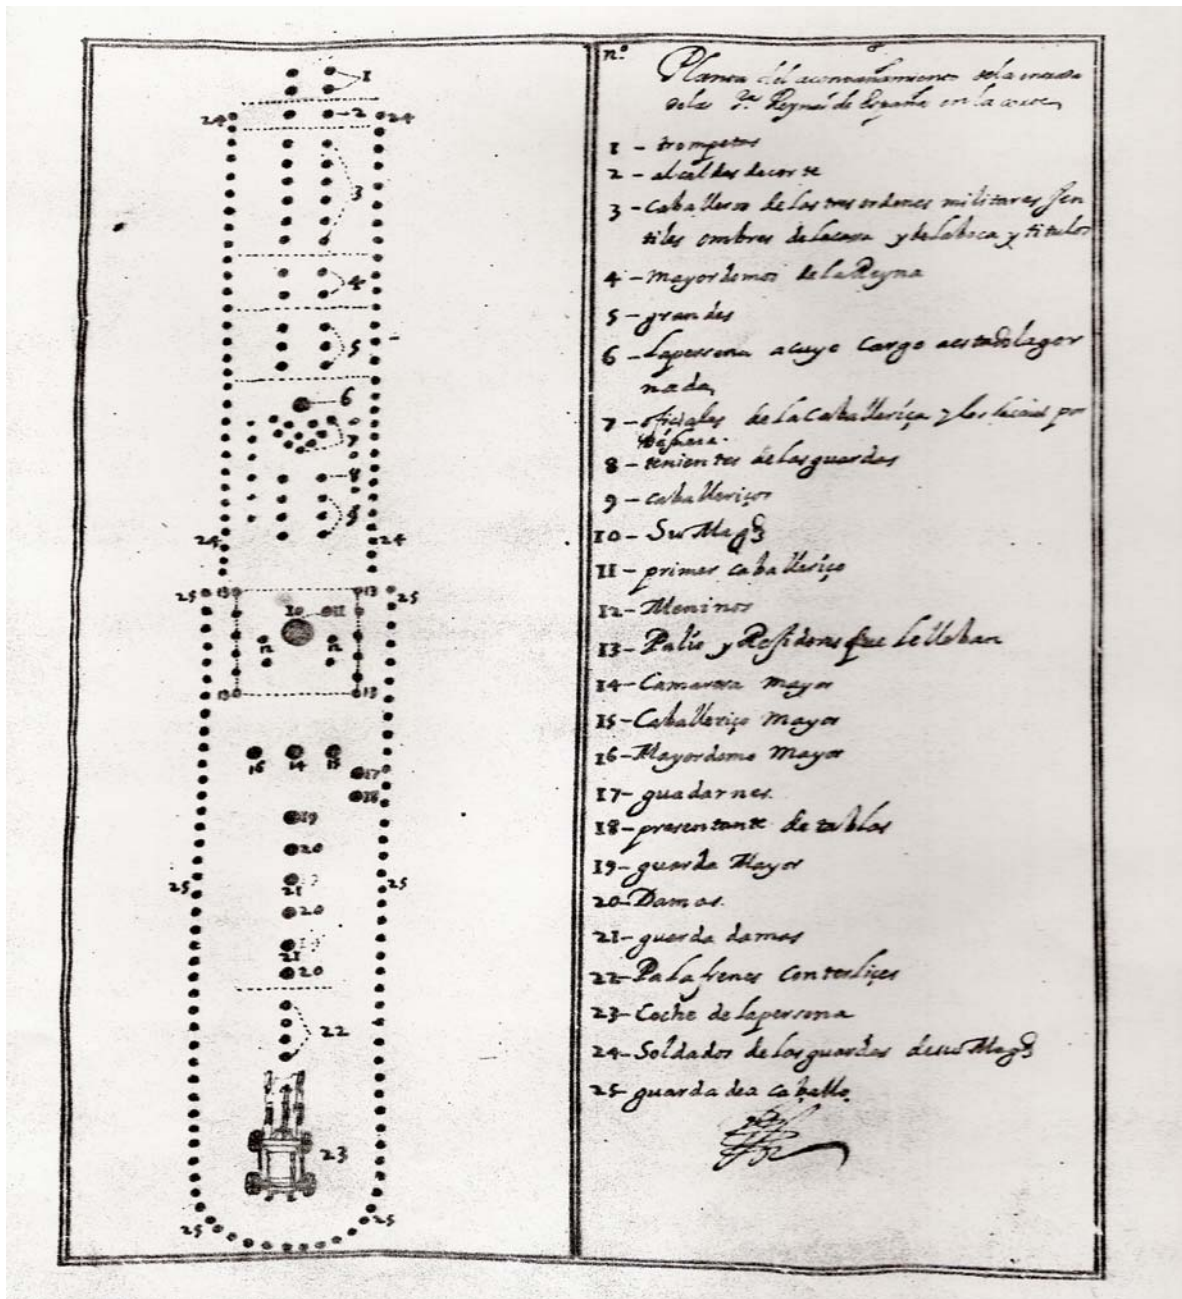 1
24 2 24
3
4
5
6
7
8
9
24 24
25 13 13 25
10 11
12 12
13 13
16 14 15
17
18
19
20
19
21
25 25
20
19
21
20
22
23
25 25
n.º 8
Planta del acompañamiento de la entrada
de las Reynas de España en la corte
1 - trompetas
2 - alcaldes de corte
3 - Caballeros de las tres ordenes militares Jen
tiles ombres de la casa y de la boca y titulos
4 - Mayordomos de la Reyna
5 - grandes
6 - La persona a cuyo Cargo a estado la gor
nada
7 - oficiales de la Caballeriça y
8 - tenientes de las guardas
9 - caballeriços
10 - Su Magd
11 - primer caballeriço
12 - Meninos
13 - Palio y Regidores que le lleban
14 - Camarera mayor
15 - Caballeriço Mayor
16 - Mayordomo Mayor
17 - guadarnes.
18 - presentante de tablas
19 - guarda Mayor
20 - Damas.
21 - guarda damas
22 - Palafrenes Con terliçes
23 - Coche de la persona
24 - Soldados de las guardas de su Magd
25 - guarda de a caballo.